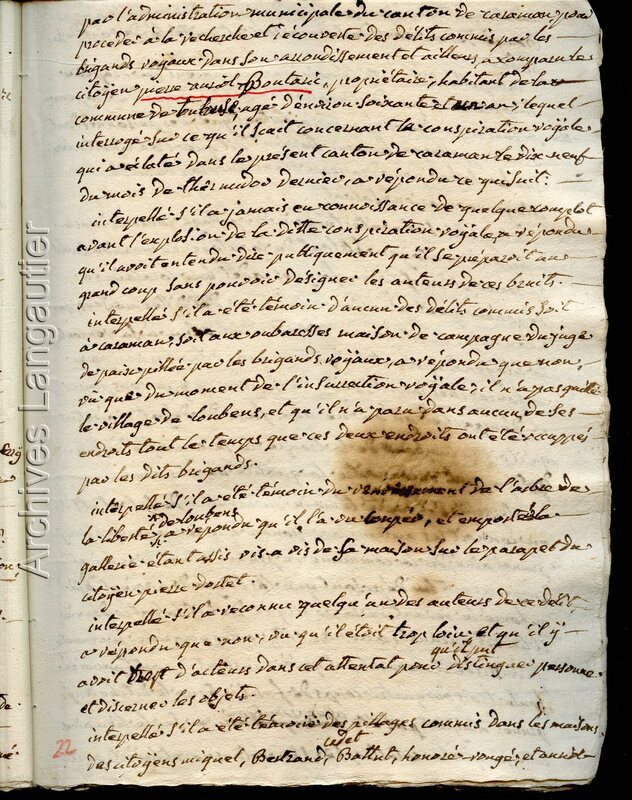 par l'administration municipale du canton de caraman pour
proceder à la recherche et decouverte des delits commis par les
brigands royaux dans son arrondissement et ailleurs, a comparu le
citoyen pierre auriol Boutaric, proprietaire habitant de la
commune de toulouse, agé d'environ soixante et un an, lequel
interrogé sur ce qu'il scait concernant la conspiration royale
qui a éclaté dans le présent canton de caraman le dix neuf
du mois de thermidor dernier, a répondu ce qui suit:
interpellé s'il a jamais eu connoissance de quelque complot
avant l'explosion de la ditte conspiration royale, a répondu
qu'il avoit entendu dire publiquement qu'il se preparoit un
grand coup sans pouvoir designer les auteurs de ces bruits.
interpellé s'il a été témoin d'aucun des délits commis soit
à caraman, soit aux oubaresses maison de campagne du juge
de paix pillée par les brigands royaux, a répondu que non,
vu que du moment de l'insurrection royale, il n'a pas quitté
le village de loubens, et qu'il n'a paru dans aucun de ses
endroits tout le temps que ces deux endroits ont été occuppés
par les dits brigands.
interpellé s'il a été témoin du renversement de l'arbre de
la liberté de loubens, a répondu qu'il l'a vu couper, et emporter la
gallerie étant assis vis a vis de sa maison sur le parapet du
citoyen pierre dostet.
interpellé s'il a reconnu quelqu'un des auteurs de ce délit,
a répondu que non, vu qu'il étoit trop loin et qu'il y
avoit trop d'acteurs dans cet attentat pour qu'il put distinguer personne
et discerner les objets.
interpellé s'il a été témoin des pillages commis dans les maisons
des citoyens miquel, Bertrand, cadet Battut, honoré rougé, et auriol
22
Archives Langautier